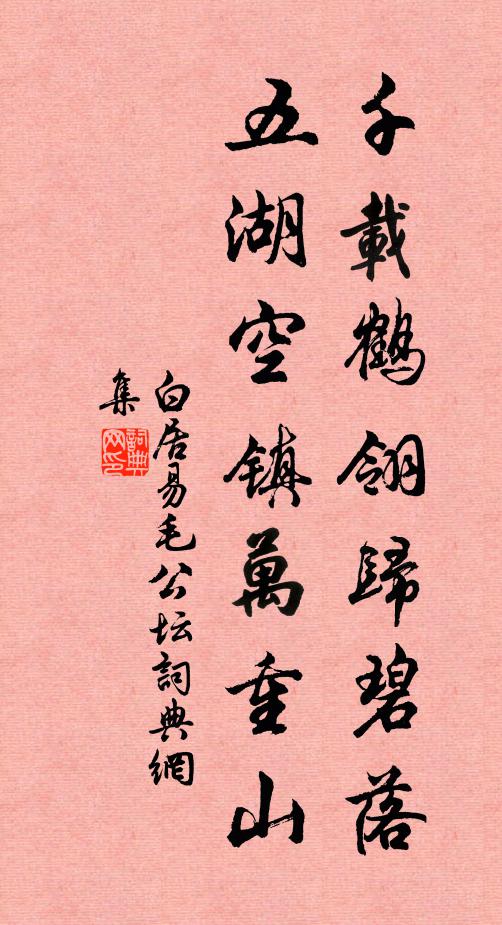 千載鶴翎歸碧落
五湖空鎮萬重山
白居易毛公坛詞典網
集
詞典网印